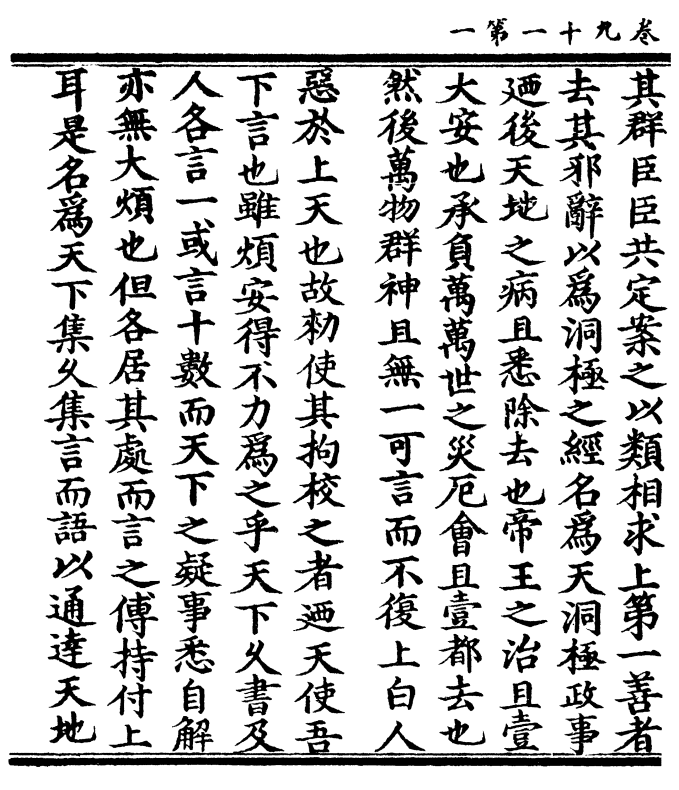 卷九十一第一
其群臣臣共定案之以類相求上第一善者
去其邪辭以爲洞極之經名爲天洞極政事
迺後天地之病且悉除去也帝王之治且壹
大安也承負萬萬世之災厄會且壹都去也
然後萬物群神且無一可言而不復上白人
惡於上天也故勑使其拘校之者迺天使吾
下言也雖煩安得不力爲之乎天下文書及
人各言一或言十數而天下之疑事悉自解
亦無大煩也但各居其處而言之傳持付上
耳是名爲天下集文集言而語以通達天地